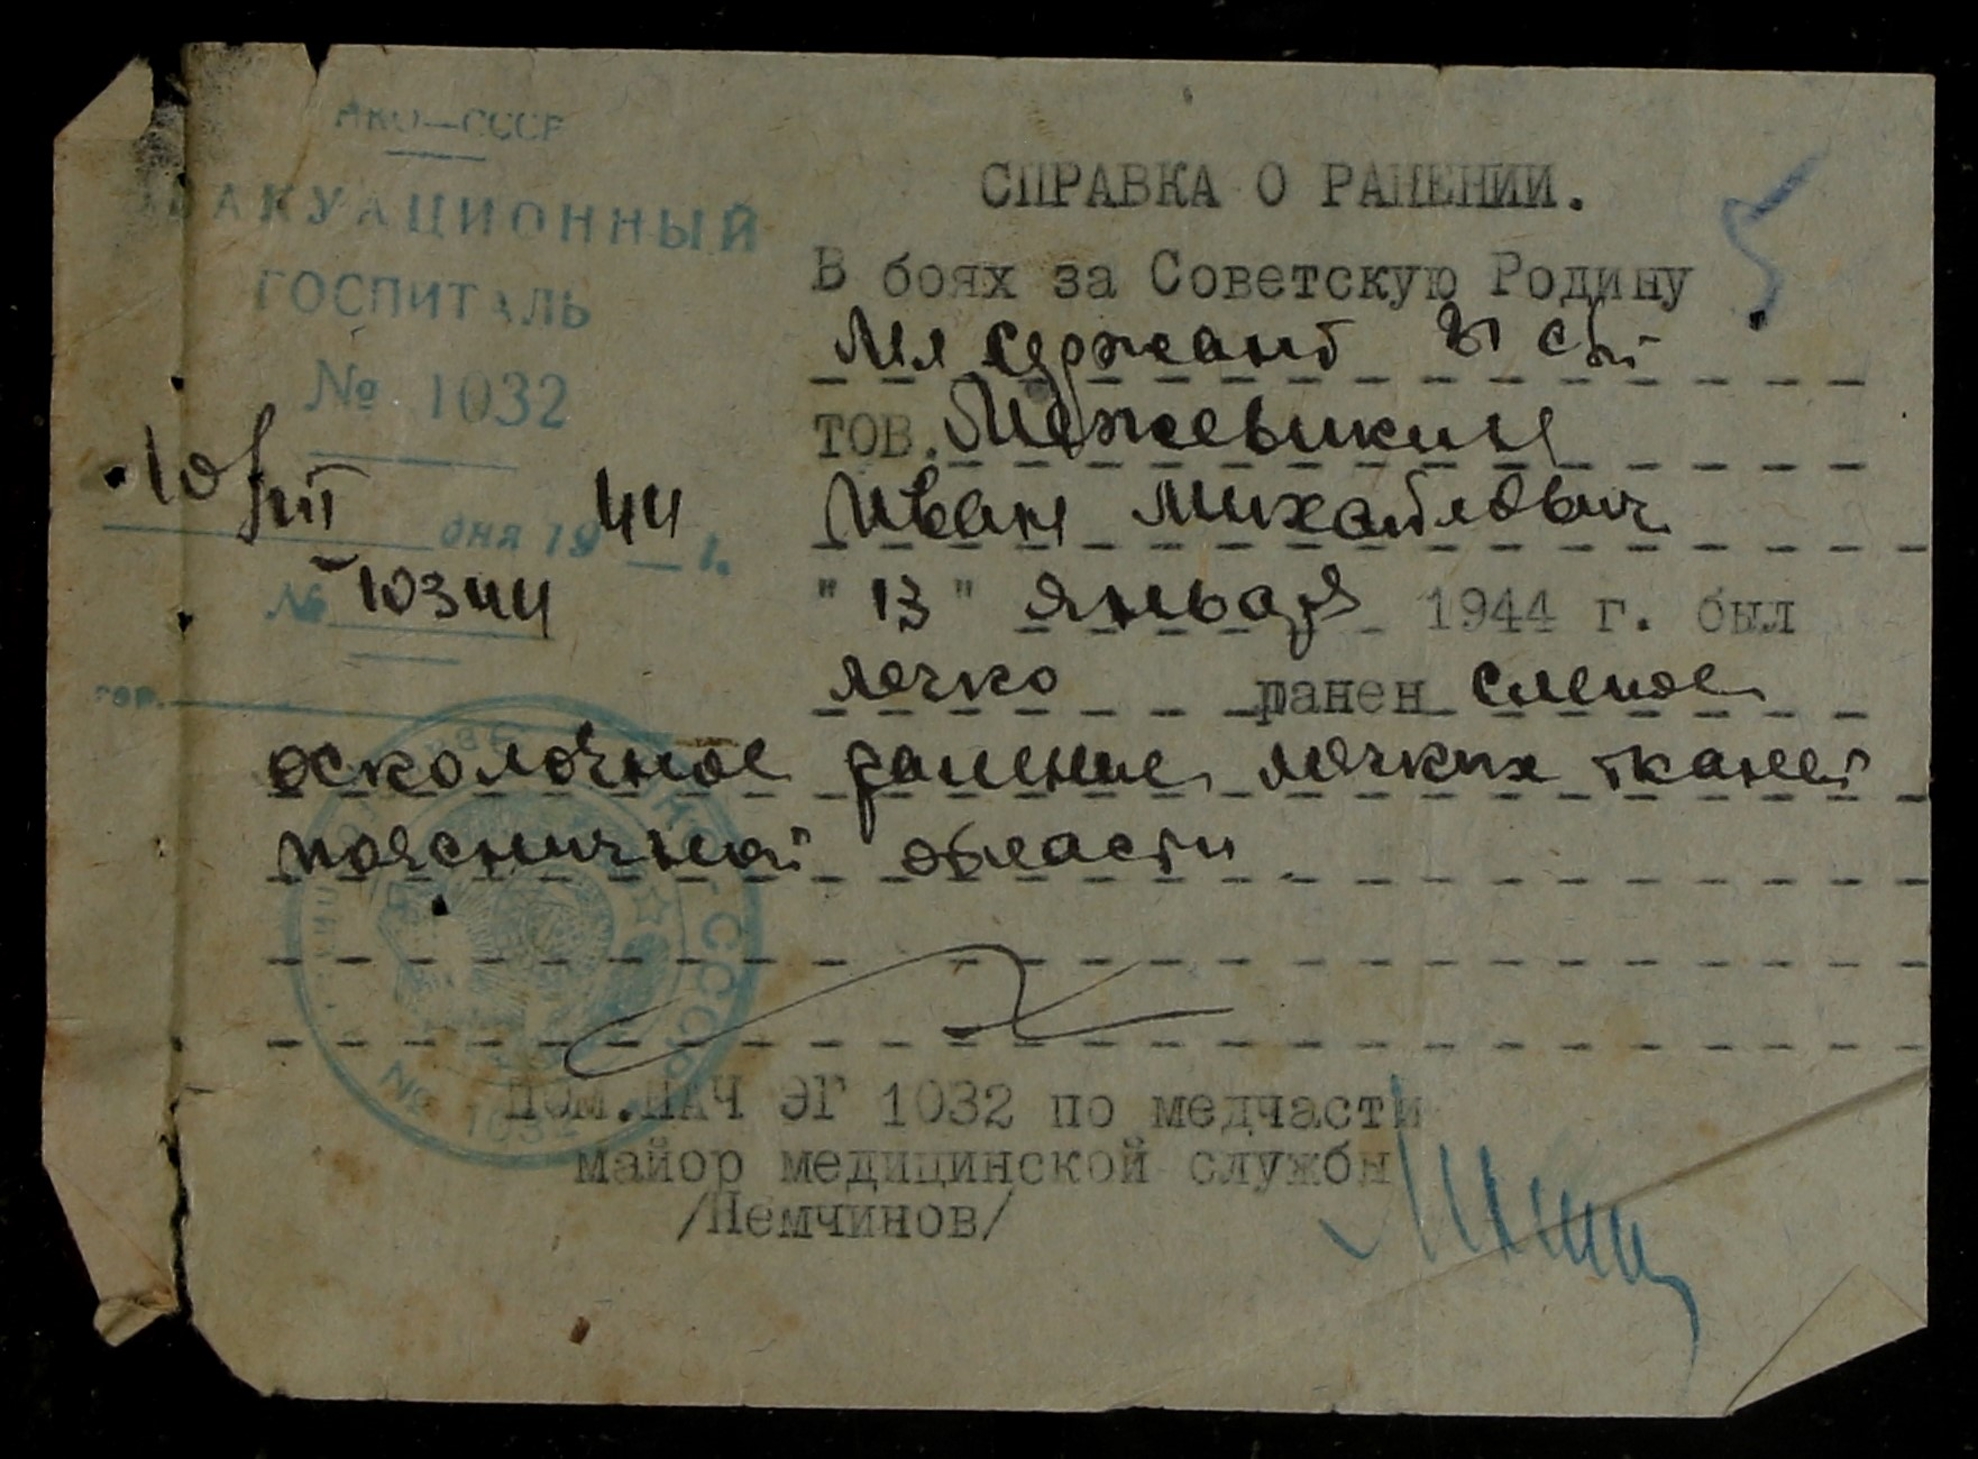 НКО—СССР
ЭВАКУАЦИОННЫЙ
ГОСПИТАЛЬ
№ 1032
10/III 44
дня 19 г.
№ 10344
гор.
СПРАВКА О РАНЕНИИ.
5
В боях за Советскую Родину
Мл сержант
тов. Межевикин
Иван Михайлович
" 13 " января 1944 г. был
легко ранен слепое
осколочное ранение мягких тканей
поясничной области
СССР
№ 1032
ПОМ.НАЧ ЭГ 1032 по медчасти
майор медицинской службы
/Немчинов/